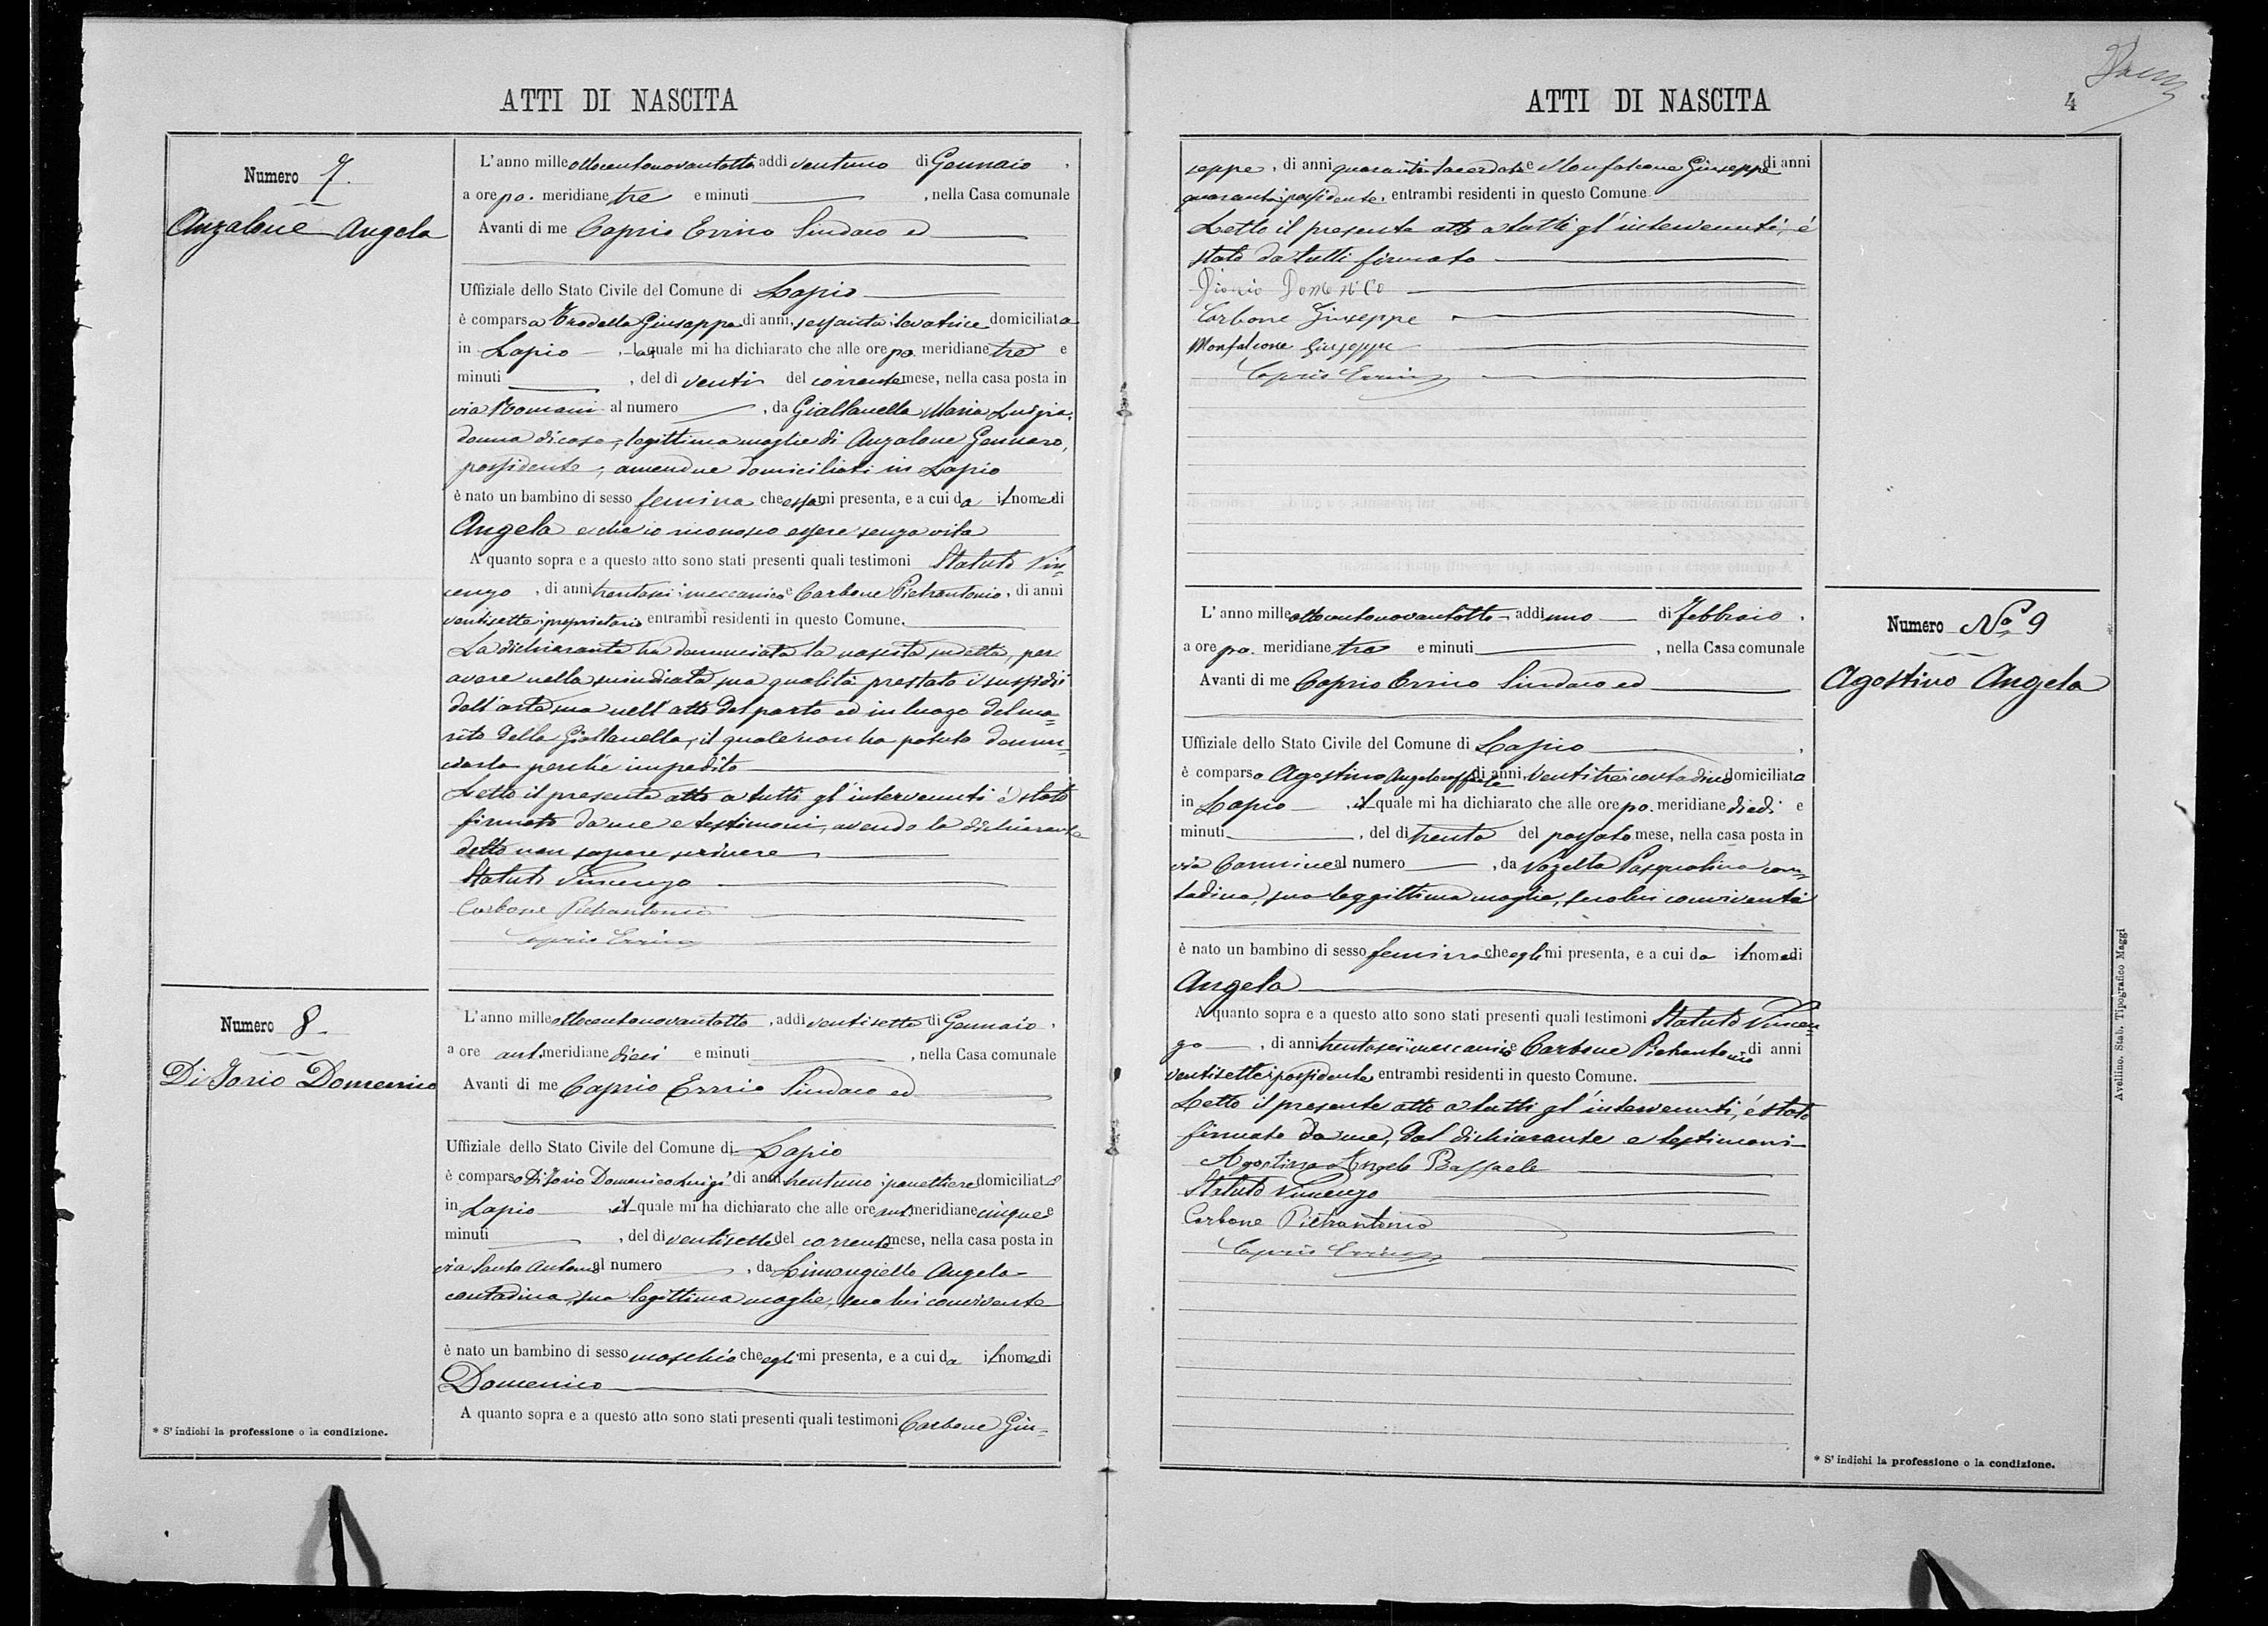 ATTI DI NASCITA
Numero 7.
Anzalone Angela
L'anno mille ottocentonovantotto addì ventuno di Gennaio,
a ore po. meridiane tre e minuti , nella Casa comunale
Avanti di me Caprio Errico Sindaco ed
Uffiziale dello Stato Civile del Comune di Lapio
è comparsa Trodella Giuseppa di anni sessanta levatrice domiciliata
in Lapio , la quale mi ha dichiarato che alle ore po. meridiane tre e
minuti , del dì venti del corrente mese, nella casa posta in
via Romani al numero , da Giallanella Maria Luigia,
donna di casa, legittima moglie di Anzalone Gennaro,
possidente, amendue domiciliati in Lapio
è nato un bambino di sesso femina che essa mi presenta, e a cui da il nome di
Angela e che io riconosco essere senza vita
A quanto sopra e a questo atto sono stati presenti quali testimoni Statuto Vin=
cenzo , di anni trentasei meccanico e Carbone Pietrantonio, di anni
ventisette proprietario entrambi residenti in questo Comune.
La dichiarante ha denunciata la nascita sudetta, per
avere nella suindicata sua qualità prestato i sussidii
dell'arte sua nell'atto del parto ed in luogo del ma=
rito della Giallanella, il quale non ha potuto denun=
ciarla perchè impedito
Letto il presente atto a tutti gl'intervenuti è stato
firmato da me e testimoni, avendo la dichiarante
detto non sapere scrivere
Statuto Vincenzo
Carbone Pietrantonio
Caprio Errico
Numero 8.
Di Iorio Domenico
L'anno mille ottocentonovantotto, addì ventisette di Gennaio,
a ore ant. meridiane dieci e minuti , nella Casa comunale
Avanti di me Caprio Errico Sindaco ed
Uffiziale dello Stato Civile del Comune di Lapio
è comparso Di Iorio Domenico Luigi di anni trentuno panettiere domiciliato
in Lapio il quale mi ha dichiarato che alle ore ant. meridiane cinque e
minuti , del dì ventisette del corrente mese, nella casa posta in
via Santo Antonio al numero , da Limongiello Angela
contadina, sua legittima moglie, seco lui convivente
è nato un bambino di sesso maschio che egli mi presenta, e a cui da il nome di
Domenico
A quanto sopra e a questo atto sono stati presenti quali testimoni Carbone Giu=
* S'indichi la professione o la condizione.
ATTI DI NASCITA
4
seppe, di anni quaranta sacerdote e Monfalcone Giuseppe di anni
quaranta possidente, entrambi residenti in questo Comune
Letto il presente atto a tutti gl'intervenuti, è
stato da tutti firmato
Diorio Domenico
Carbone Giuseppe
Monfalcone Giuseppe
Caprio Errico
L'anno mille ottocentonovantotto addì uno di Febbraio,
a ore po. meridiane tre e minuti , nella Casa comunale
Avanti di me Caprio Errico Sindaco ed
Uffiziale dello Stato Civile del Comune di Lapio
è comparso Agostino Angeloraffaele di anni ventitre contadino domiciliato
in Lapio , il quale mi ha dichiarato che alle ore po. meridiane dieci e
minuti , del dì trenta del passato mese, nella casa posta in
via Carmine al numero , da Vozella Pasqualina con=
tadina, sua leggittima moglie, seco lui convivente
è nato un bambino di sesso femina che egli mi presenta, e a cui da il nome di
Angela
A quanto sopra e a questo atto sono stati presenti quali testimoni Statuto Vincen=
zo , di anni trentasei meccanico e Carbone Pietrantonio di anni
ventisette possidente entrambi residenti in questo Comune.
Letto il presente atto a tutti gl'intervenuti, è stato
firmato da me, dal dichiarante e testimoni
Agostino Angelo Raffaele
Statuto Vincenzo
Carbone Pietrantonio
Caprio Errico
Numero No 9
Agostino Angela
Avellino. Stab. Tipografico Maggi
* S'indichi la professione o la condizione.